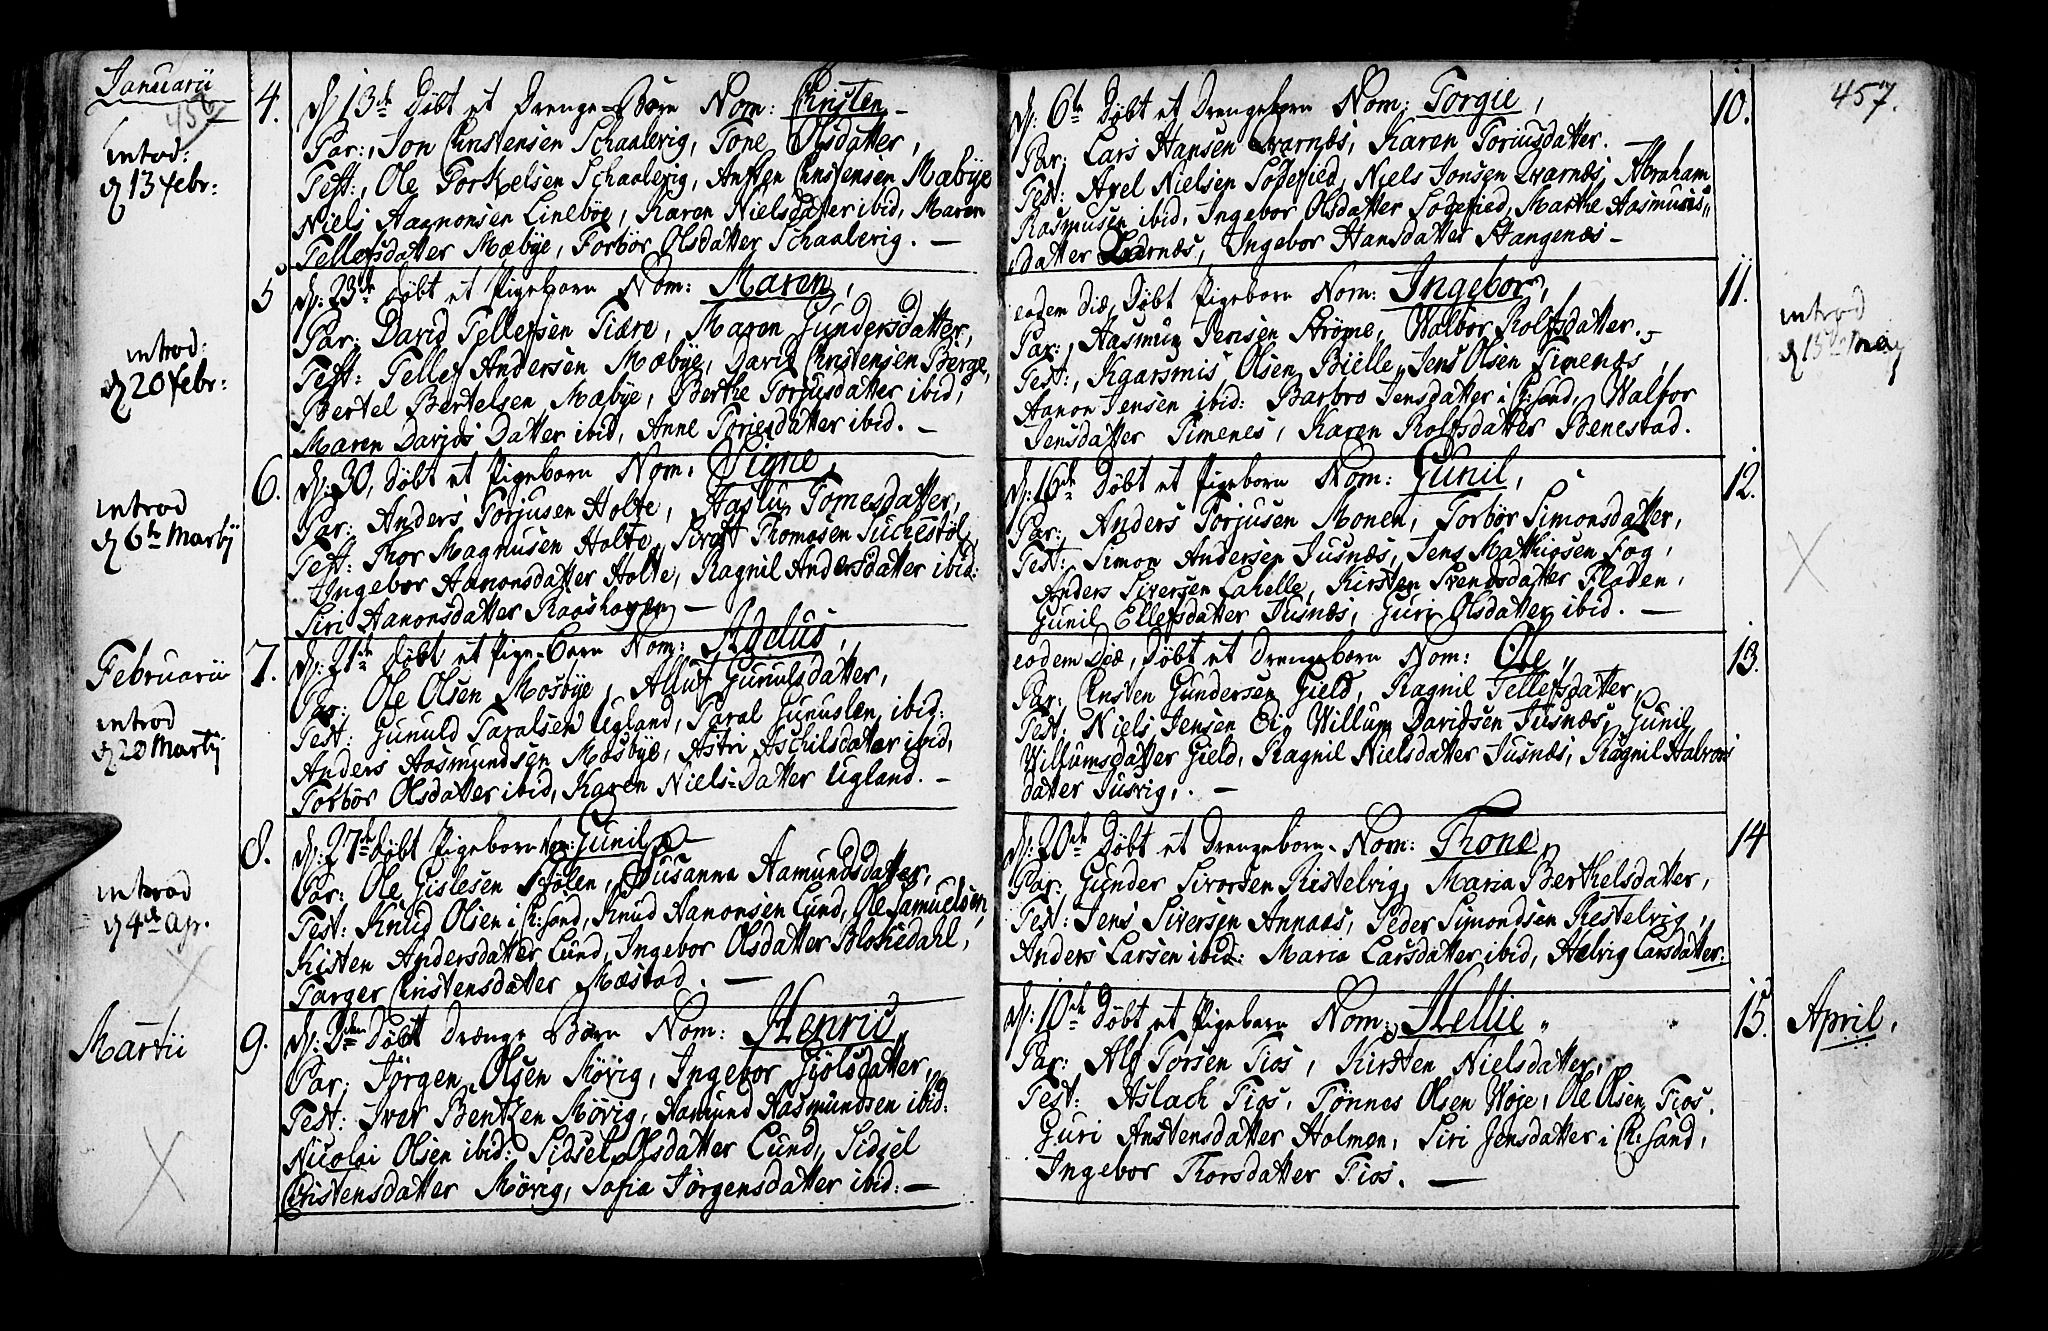 Januarii
456
introd:
d 13 febr:
4.
d. 13de Døbt et Drenge-Børn Nom: Christen -
Par:, Jon Christensen Schaalevig, Tone Olsdatter,
Test:, Ole Torkelsen Schaalevig, Ansten Christensen Mæbye
Niels Aanonsen Lineböe, Karen Nielsdatter ibid, Maren
Tellefsdatter Mæbye, Torbör Olsdatter Schaalevig. -
introd:
d 20 febr:
5
d: 23de Døbt et Pigebarn Nom: Maren,
Par: David Tellefsen Tiære, Maren Gundersdatter,
Test: Tellef Andersen Mæbye, David Christensen Berge,
Bertel Bertelsen Mæbye, Berthe Torjusdatter ibid,
Maren Davids Datter ibid, Anne Toriesdatter ibid. -
introd
d 6te Martij
6.
d: 30, døbt et Pigebarn Nom: Signe,
Par: Anders Torjusen Holte, Aaslu Tomesdatter,
Test: Thor Magnusen Holte, Sivert Thomesen Suchestöl,
Ingebor Aanonsdatter Holte, Ragnil Andersdatter ibid:
Siri Aanonsdatter Raashaven -
Februarii
introd
d 20 Martij
7.
d: 21de Døbt et Pige-Barn Nom: Adelus,
Par: Ole Olsen Mosbye, Alluf Gunulsdatter,
Test: Gunuld Taralsen Ugland, Taral Gunuslen ibid:
Anders Aasmundsen Mosbye, Astri Aschilsdatter ibid,
Torbör Olsdatter ibid, Karen Niels-Datter Ugland. -
introd
d 4de Apr.
8.
d: 27de døbt Pigebarn Nom: Gunil
Par: Ole Gislesen Stölen, Susanna Aamundsdatter,
Test: Knud Olsen i Ch: Sand, Knud Aanonsen Lund, Ole Samuelsen,
Kisten Andersdatter Lund, Ingebor Olsdatter Bloksedahl,
Targer Christensdatter Mæstad. -
Martii
9.
d: 2den Døbt Drænge Børn Nom: Henric,
Par: Jörgen Olsen Kövig, Ingebor Giölsdatter,
Test: Iver Bentzen Mövig, Aamund Aasmundsen ibid:
Nicolai Olsen ibid: Sidsel Olsdatter Lund, Sidsel
Christensdatter Mövig, Sofia Jörgensdatter ibid: -
457.
10.
d: 6te Døbt et Drengebarn Nom: Torgie,
Par: Lars Hansen Qvarnæs, Karen Toriusdatter.
Test: Axel Nielsen Södefied, Niels Jonsen Qvarnæs, Abraham
Rasmusen ibid, Ingebor Olsdatter Södefied, Marthe Aasmuns,,
datter Qvarnæs, Ingebor Hansdatter Stangenæs -
11.
eodem Diæ, Døbt Pigebarn Nom: Ingebor,
introd
d 15de Maij
Par:, Aasmun Jensen Strøme, Walbor Rolfsdatter. -
Test:, Kgarsmis Olsen Bielle, Jens Olsen Timenæs,
Aanon Jensen ibid: Barbro Jensdatter i Ch: Sand, Walbor
Jensdatter Timenes, Karen Rolfsdatter Benestad.
12.
d: 16de Døbt et Pigebarn Nom: Gunil,
Par:, Anders Torjusen Monen, Torbör Simonsdatter,
Test: Simon Andersen Jusnæs, Jens Mathiosen Fog,
Anders Siversen Lahelle, Kirsten Svendsdatter Floden,
Gunil Ellefsdatter Jusnæs, Guri Olsdatter ibid. -
13.
eodem Diæ, Døbt et Drengebarn Nom: Ole,,
Par:, Christen Gundersen Gield, Ragnil Tellefsdatter,
Test: Niels Jensen Ei, Willum Davidsen Jusnæs, Gunil
Willumsdatter Gield, Ragnil Nielsdatter Jusnæs, Ragnil Halvors
datter Jusvig,. -
14
d: 20de Døbt et Drengebarn - Nom: Thone,
Par:, Gunder Siversen Kistelvig, Maria Berthelsdatter,
Test: Jens Siversen Annaas, Peder Simondsen Kestelvig,,
Anders Larsen ibid: Maria Larsdatter ibid, Helvig Larsdatter:
15.
April.
d: 10de Døbt et Pigebarn Nom: Hellie,,
Par: Alf Torsen Tios, Kirsten Nielsdatter,
Test: Aslach Tios, Tönnes Olsen Höje, Ole Olsen Tios,
Guri Anstensdatter Holmen, Siri Jensdatter i Ch: Sand,
Ingebor Thorsdatter Tios. -